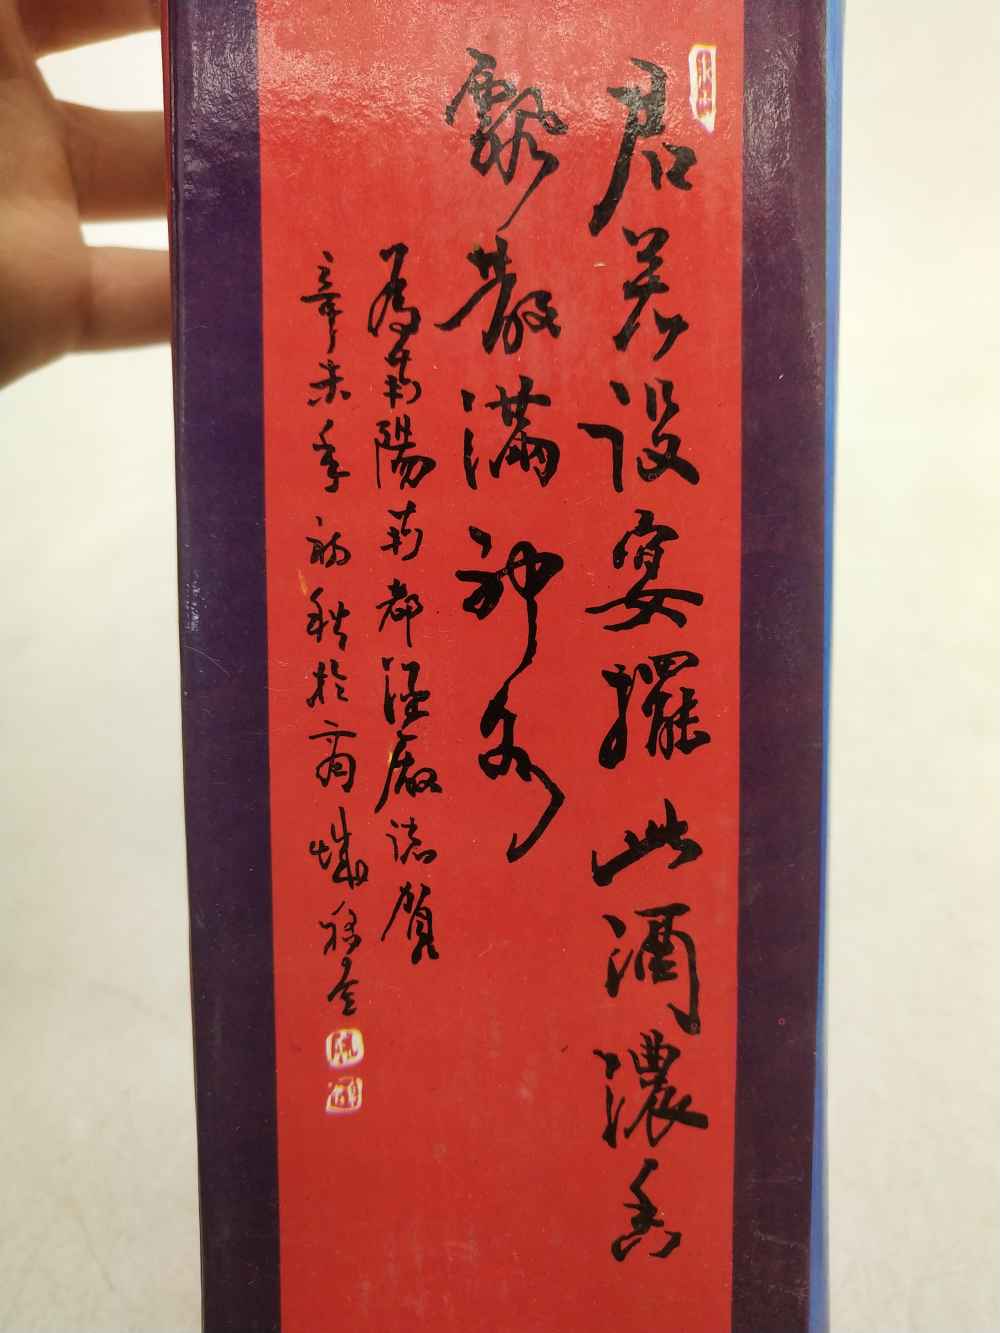 君若设宴擺此酒濃香
飄散滿神州
為南陽荊都酒廠誌賀
辛未年初秋於商城